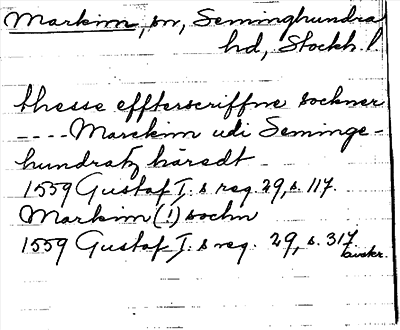 Markim, sn, Seminghundra
hd, Stockh. l.
thesse effterscriffne sockner
---- Marckim udi Seminge-
hundratz häredt -
1559 Gustaf I:s reg. 29, s. 117.
Markim (!) sochn
1559 Gustaf I:s reg. 29, s. 317.
avskr.